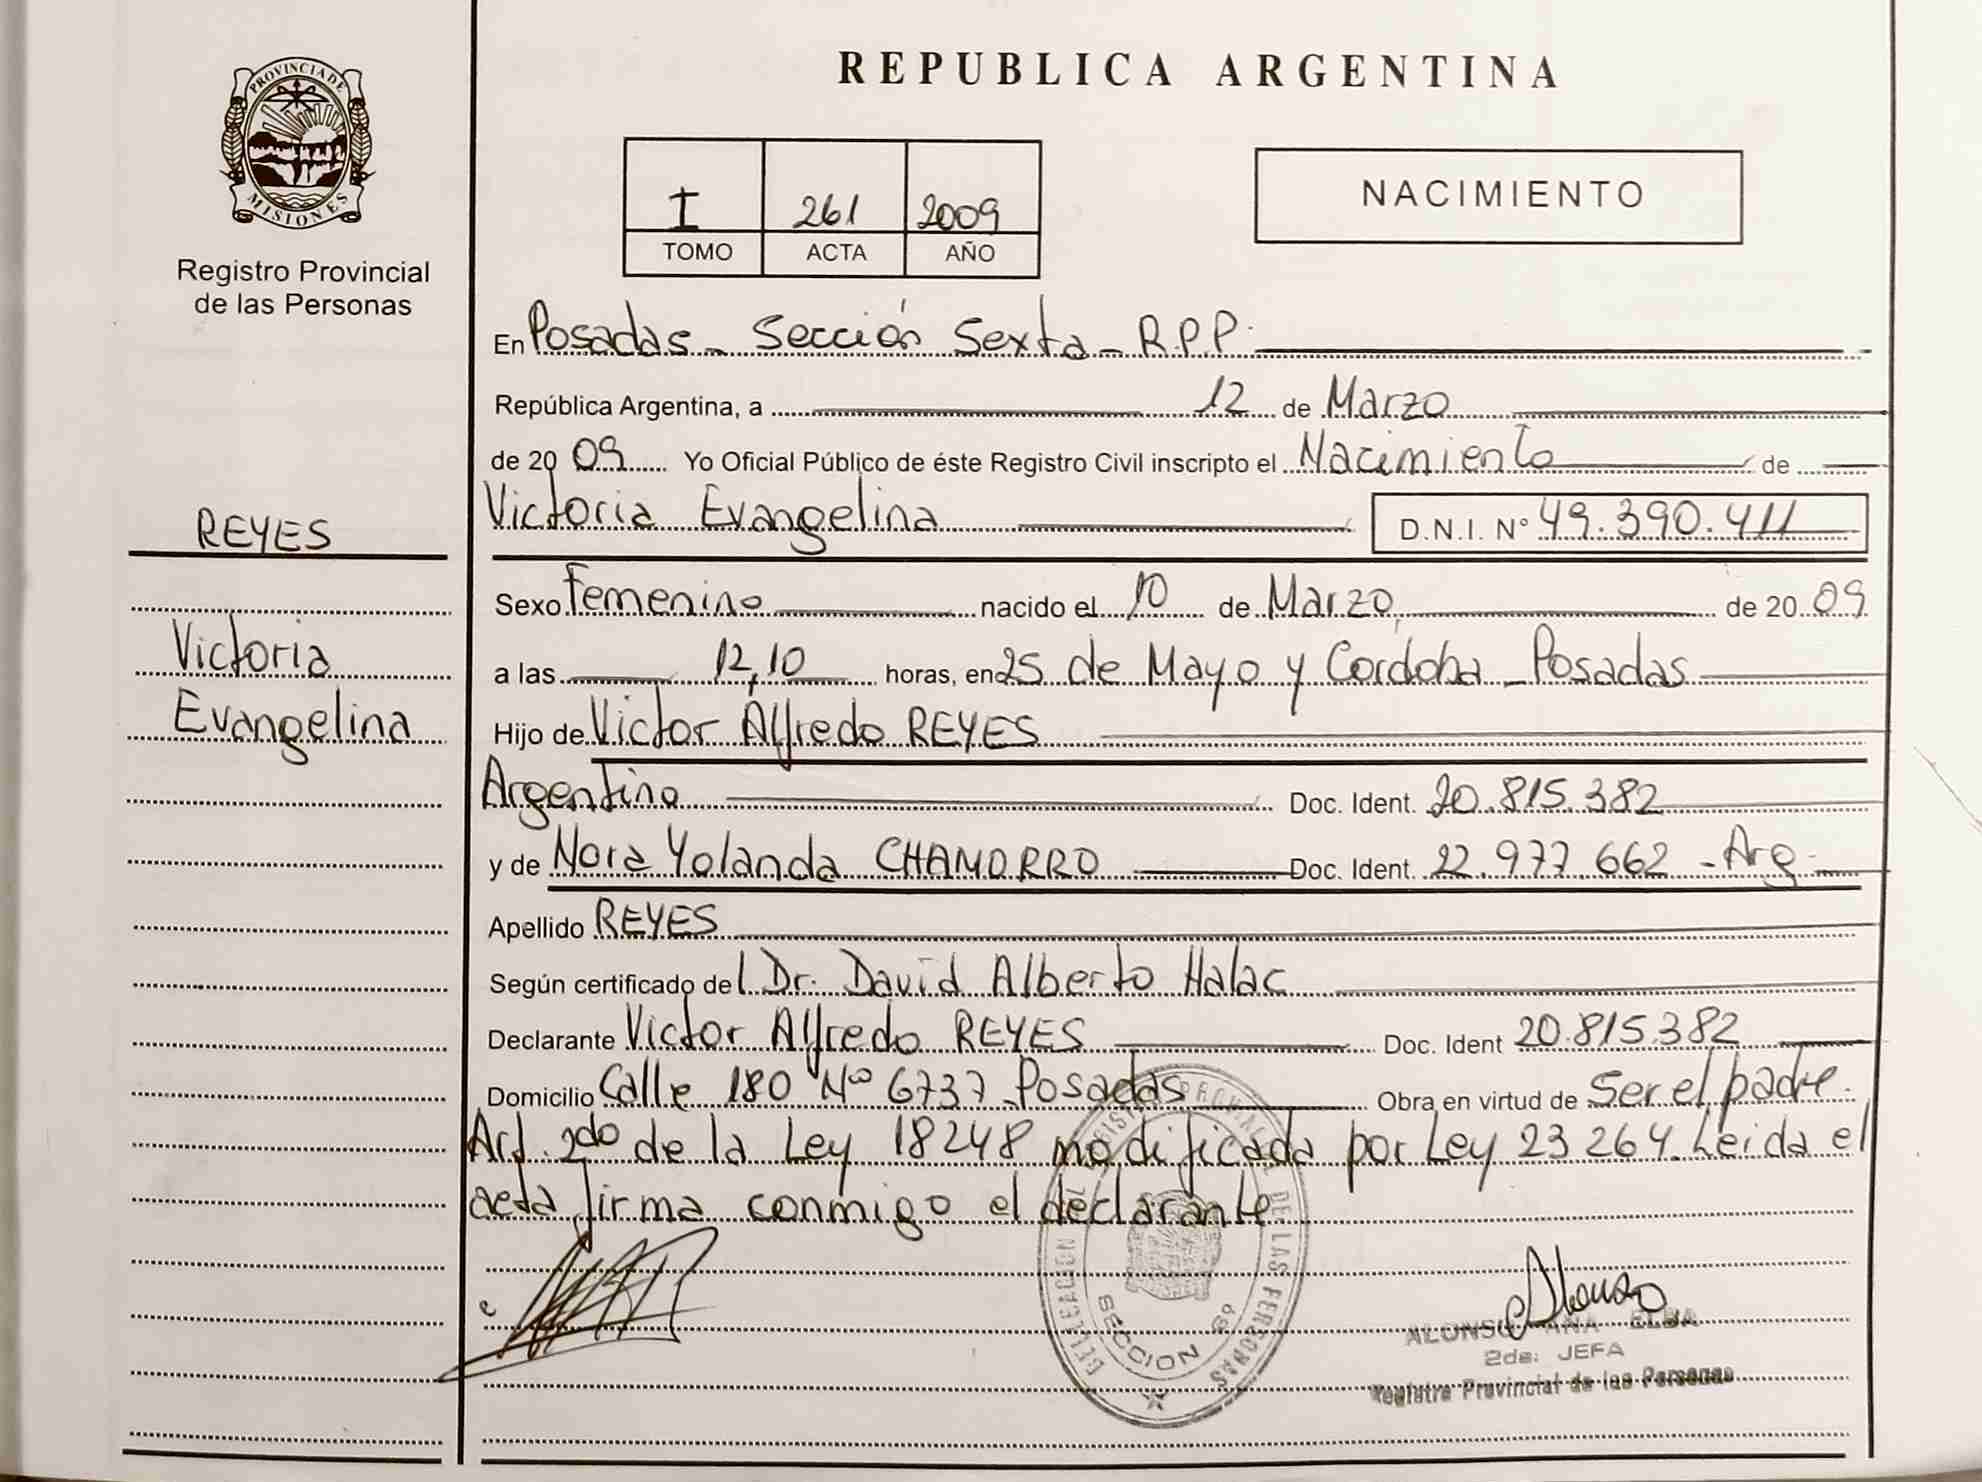 REPUBLICA ARGENTINA
PROVINCIA DE
MISIONES
Registro Provincial
de las Personas
I 261 2009
TOMO ACTA AÑO
NACIMIENTO
En Posadas - Sección Sexta - R.P.P.
República Argentina, a 12 de Marzo
de 2009 Yo Oficial Público de éste Registro Civil inscripto el Nacimiento de
Victoria Evangelina D.N.I. Nº 49.390.411
REYES
Sexo Femenino nacido el 10 de Marzo de 2009
Victoria
a las 12,10 horas, en 25 de Mayo y Cordoba - Posadas
Evangelina
Hijo de Victor Alfredo REYES
Argentino Doc. Ident. 20.815.382
y de Nora Yolanda CHAMORRO Doc. Ident. 22.977.662 - Arg.
Apellido REYES
Según certificado del Dr. David Alberto Halac
Declarante Victor Alfredo REYES Doc. Ident 20.815.382
Domicilio Calle 180 Nº 6737 Posadas Obra en virtud de Ser el padre.
Art. 2do de la Ley 18248 modificada por Ley 23264. Leida el
acta firma conmigo el declarante
DELEGACION DEL REGISTRO PROVINCIAL DE LAS PERSONAS
SECCION 6ª
Alonso
ALONSO ANA ELBA
2da. JEFA
Registro Provincial de las Personas